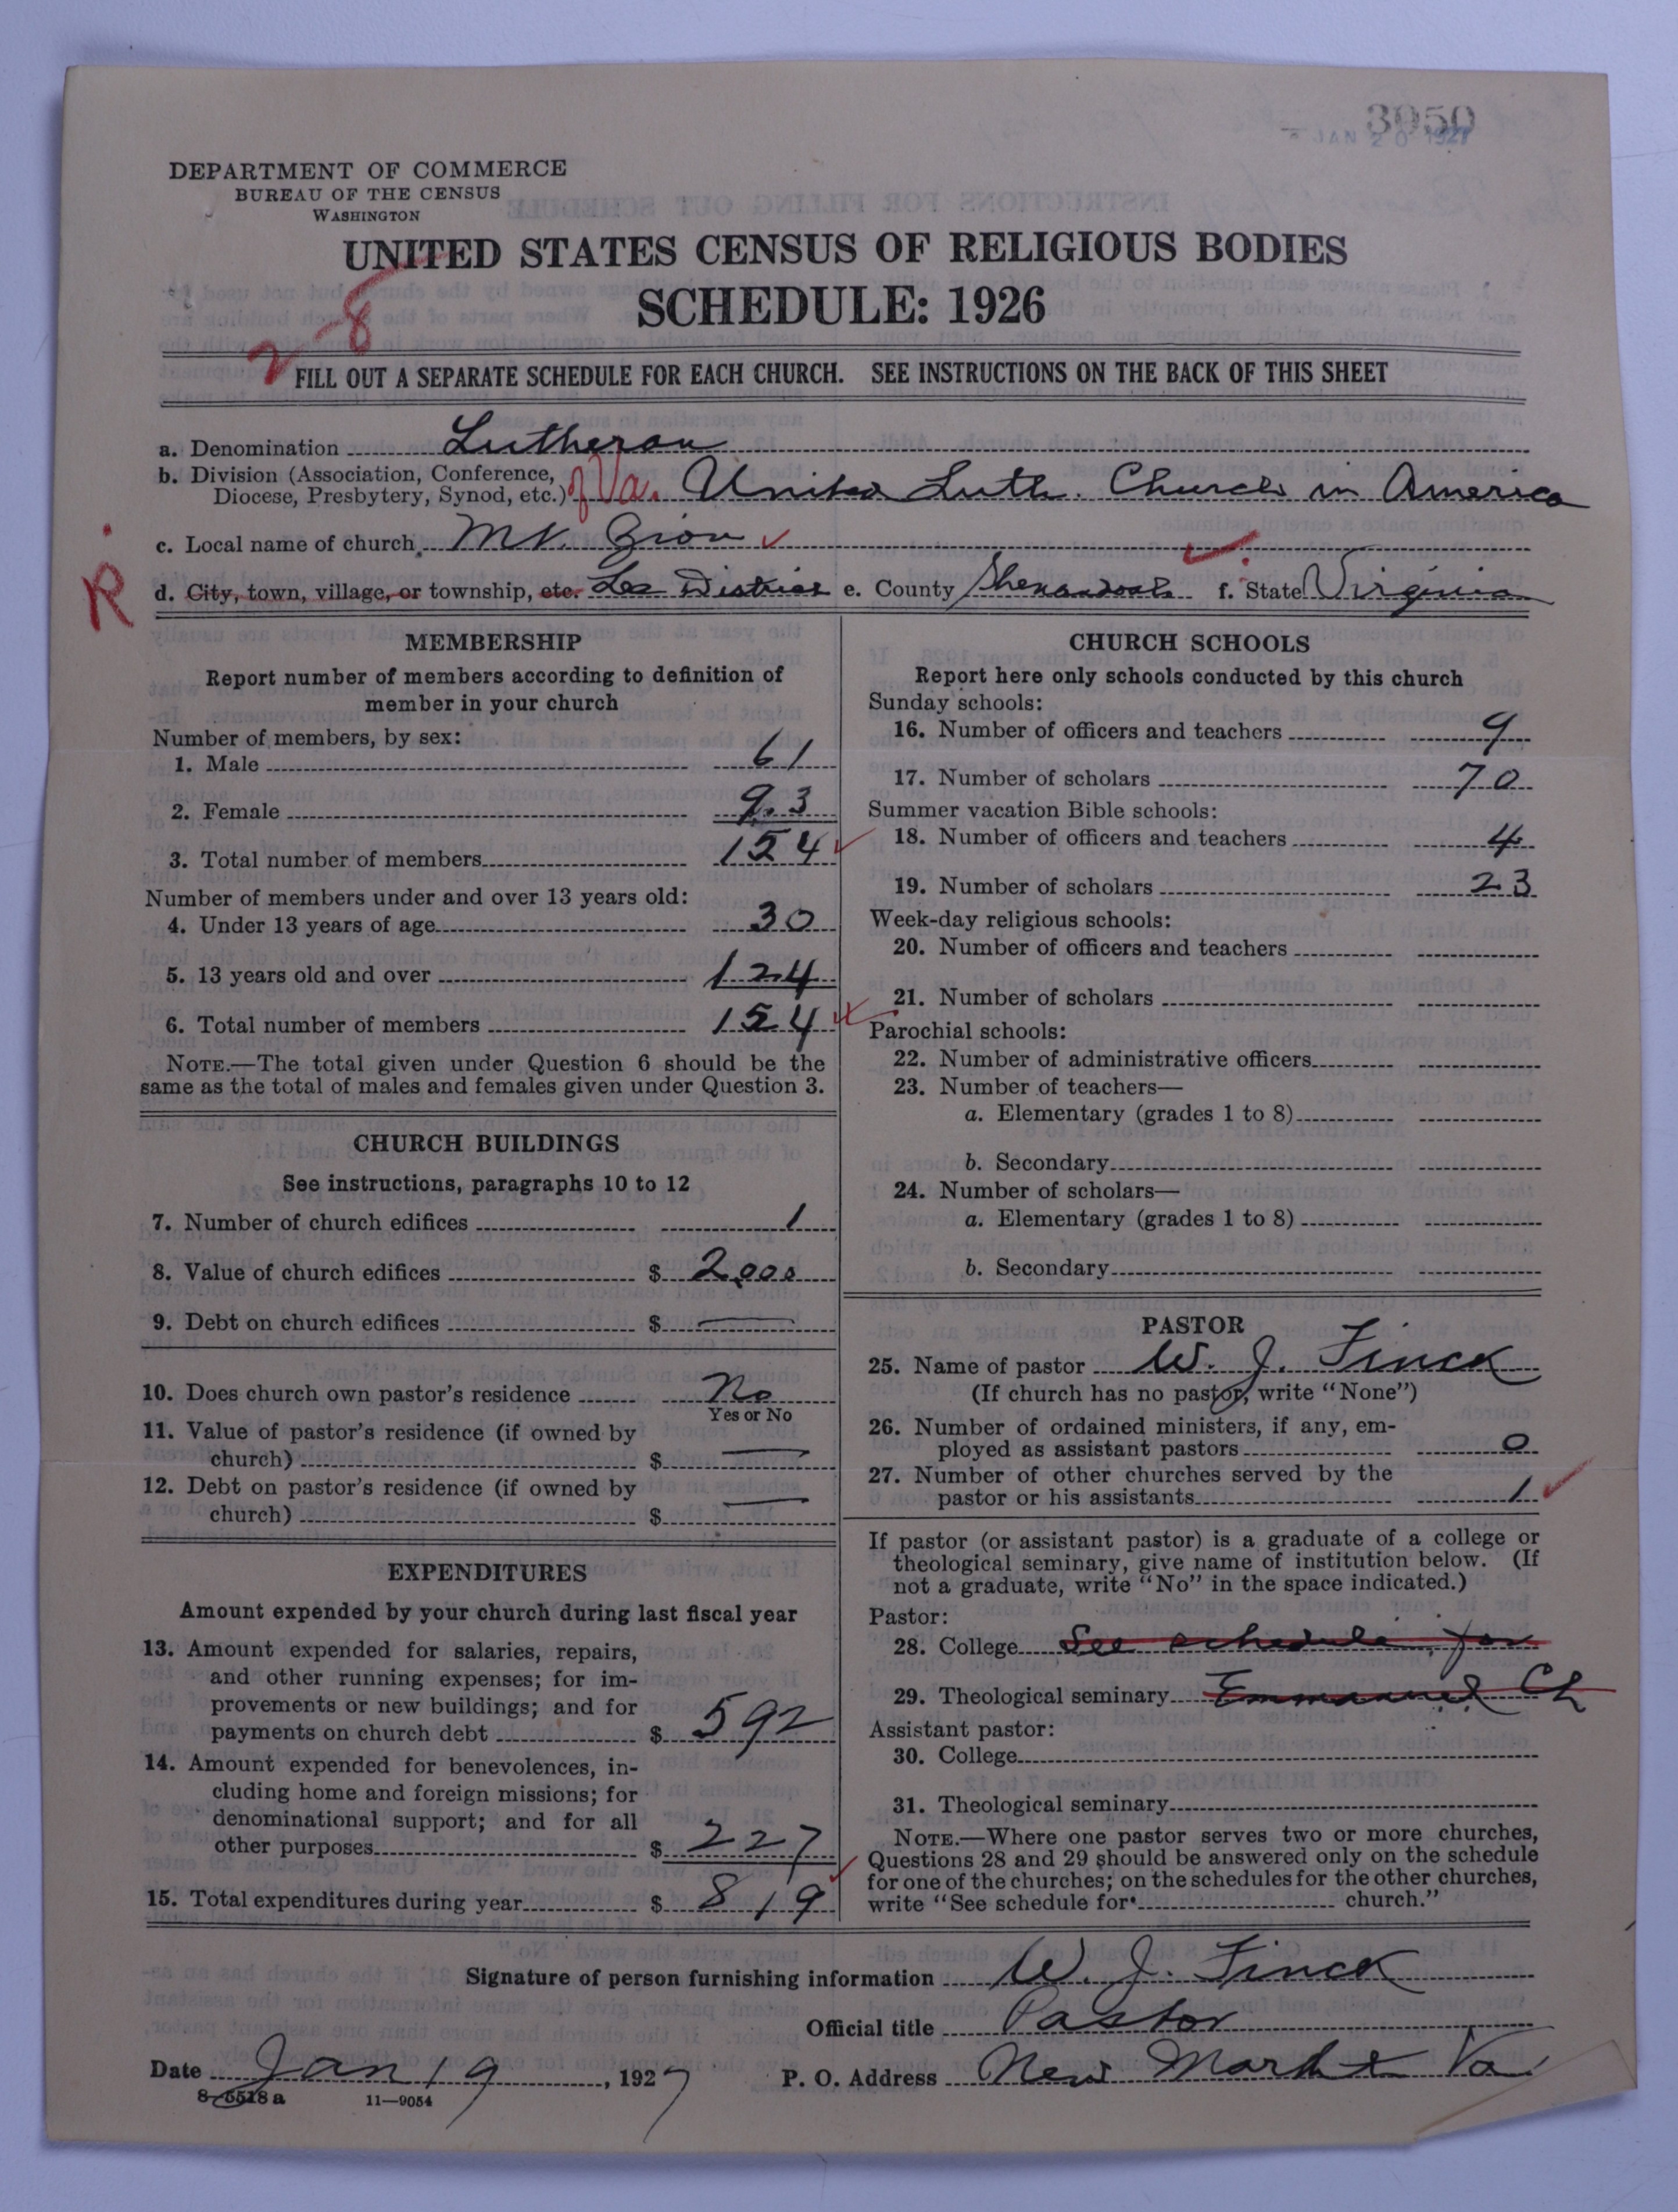 3950
JAN 20 1927
DEPARTMENT OF COMMERCE
BUREAU OF THE CENSUS
WASHINGTON
UNITED STATES CENSUS OF RELIGIOUS BODIES
SCHEDULE: 1926
2-8
FILL OUT A SEPARATE SCHEDULE FOR EACH CHURCH. SEE INSTRUCTIONS ON THE BACK OF THIS SHEET
a. Denomination Lutheran
b. Division (Association, Conference,
Diocese, Presbytery, Synod, etc.) of Va. United Luth. Church in America
c. Local name of church Mt. Zion
R
d. City, town, village, or township, etc. Lee District e. County Shenandoah f. State Virginia
MEMBERSHIP
Report number of members according to definition of
member in your church
Number of members, by sex:
1. Male 61
2. Female 93
3. Total number of members 154
Number of members under and over 13 years old:
4. Under 13 years of age 30
5. 13 years old and over 124
6. Total number of members 154
NOTE.—The total given under Question 6 should be the
same as the total of males and females given under Question 3.
CHURCH BUILDINGS
See instructions, paragraphs 10 to 12
7. Number of church edifices 1
8. Value of church edifices $ 2,000
9. Debt on church edifices $ —
10. Does church own pastor's residence No
Yes or No
11. Value of pastor's residence (if owned by
church) $ —
12. Debt on pastor's residence (if owned by
church) $ —
EXPENDITURES
Amount expended by your church during last fiscal year
13. Amount expended for salaries, repairs,
and other running expenses; for im-
provements or new buildings; and for
payments on church debt $ 592
14. Amount expended for benevolences, in-
cluding home and foreign missions; for
denominational support; and for all
other purposes $ 227
15. Total expenditures during year $ 819
CHURCH SCHOOLS
Report here only schools conducted by this church
Sunday schools:
16. Number of officers and teachers 9
17. Number of scholars 70
Summer vacation Bible schools:
18. Number of officers and teachers 4
19. Number of scholars 23
Week-day religious schools:
20. Number of officers and teachers
21. Number of scholars
Parochial schools:
22. Number of administrative officers
23. Number of teachers—
a. Elementary (grades 1 to 8)
b. Secondary
24. Number of scholars—
a. Elementary (grades 1 to 8)
b. Secondary
PASTOR
25. Name of pastor W. J. Finck
(If church has no pastor, write "None")
26. Number of ordained ministers, if any, em-
ployed as assistant pastors 0
27. Number of other churches served by the
pastor or his assistants 1
If pastor (or assistant pastor) is a graduate of a college or
theological seminary, give name of institution below. (If
not a graduate, write "No" in the space indicated.)
Pastor:
28. College See schedule for
29. Theological seminary Emmanuel Ch
Assistant pastor:
30. College
31. Theological seminary
NOTE.—Where one pastor serves two or more churches,
Questions 28 and 29 should be answered only on the schedule
for one of the churches; on the schedules for the other churches,
write "See schedule for church."
Signature of person furnishing information W. J. Finck
Official title Pastor
Date Jan 19, 1927 P. O. Address New Market Va.
8-5518 a 11—9054